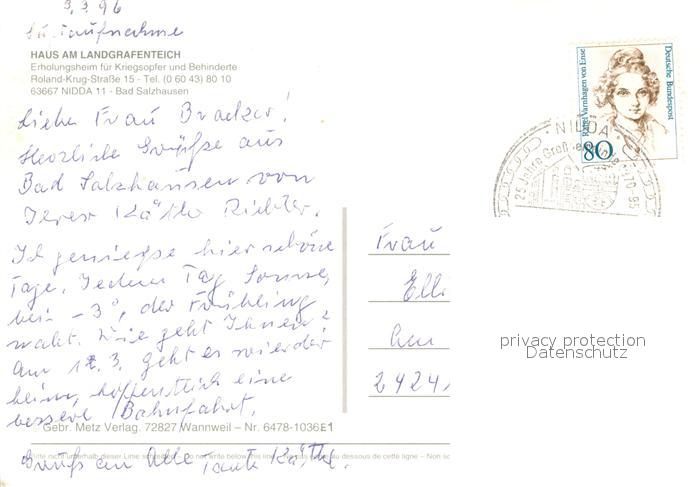 3.3.96
Luftaufnahme
HAUS AM LANDGRAFENTEICH
Erholungsheim für Kriegsopfer und Behinderte
Roland-Krug-Straße 15 - Tel. (0 60 43) 80 10
63667 NIDDA 11 - Bad Salzhausen
Liebe Frau Bracker!
Herzliche Grüße aus
Bad Salzhausen von
Ihrer Käthe Richter.
Ich genieße hier schöne
Tage. Jeden Tag Sonne,
bei -3°, der Frühling
naht. Wie geht Ihnen?
Am 12.3. geht es wieder
heim, hoffentlich eine
bessere Bahnfahrt.
Gebr. Metz Verlag. 72827 Wannweil – Nr. 6478-1036E1
Bitte nicht unterhalb dieser Linie schreiben – Do not write below this line – au dessous de cette ligne –
Gruß an Alle Tante Käthe.
Frau
Elli
Am
2424
Rahel Varnhagen von Ense
Deutsche Bundespost
80
NIDDA
25 Jahre Groß- 1970-95
privacy protection
Datenschutz